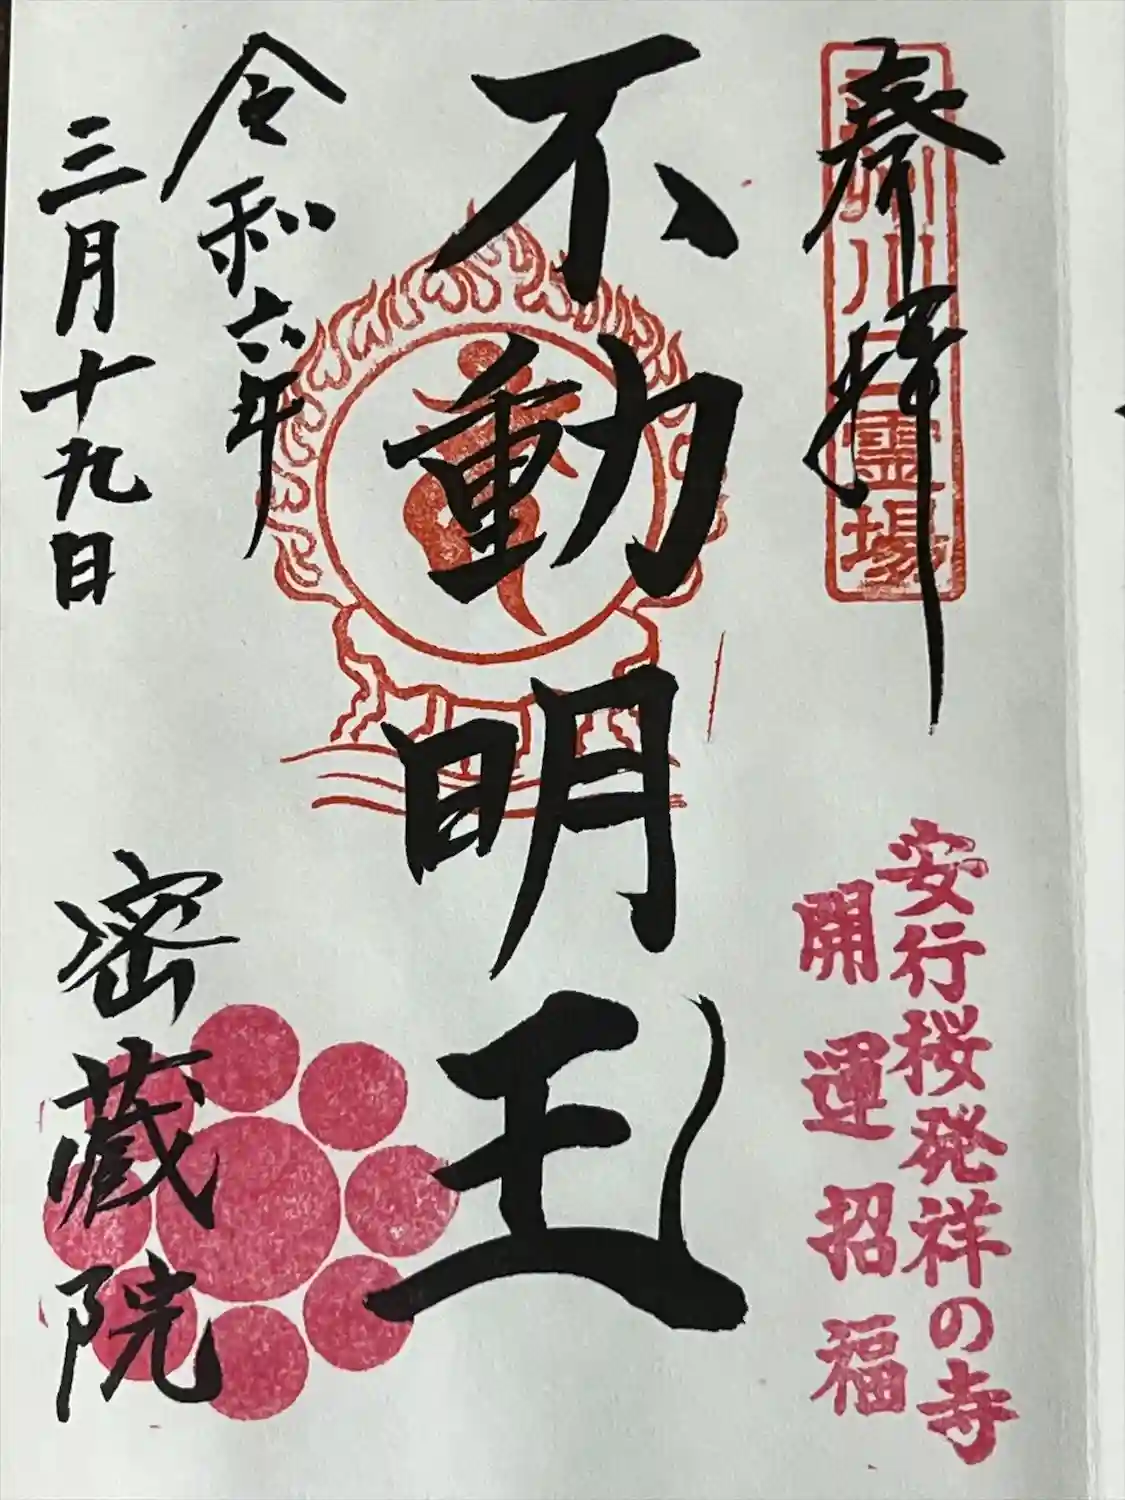 奉拝
霊場
安行桜発祥の寺
開運招福
不動明王
令和六年
三月十九日
密蔵院